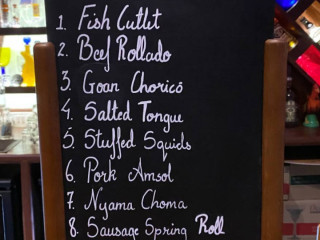 1. Fish Cutlit
2. Beef Rollado
3. Goan Choricó
4. Salted Tongue
5. Stuffed Squids
6. Pork Amsol
7. Nyama Choma
8. Sausage Spring Roll